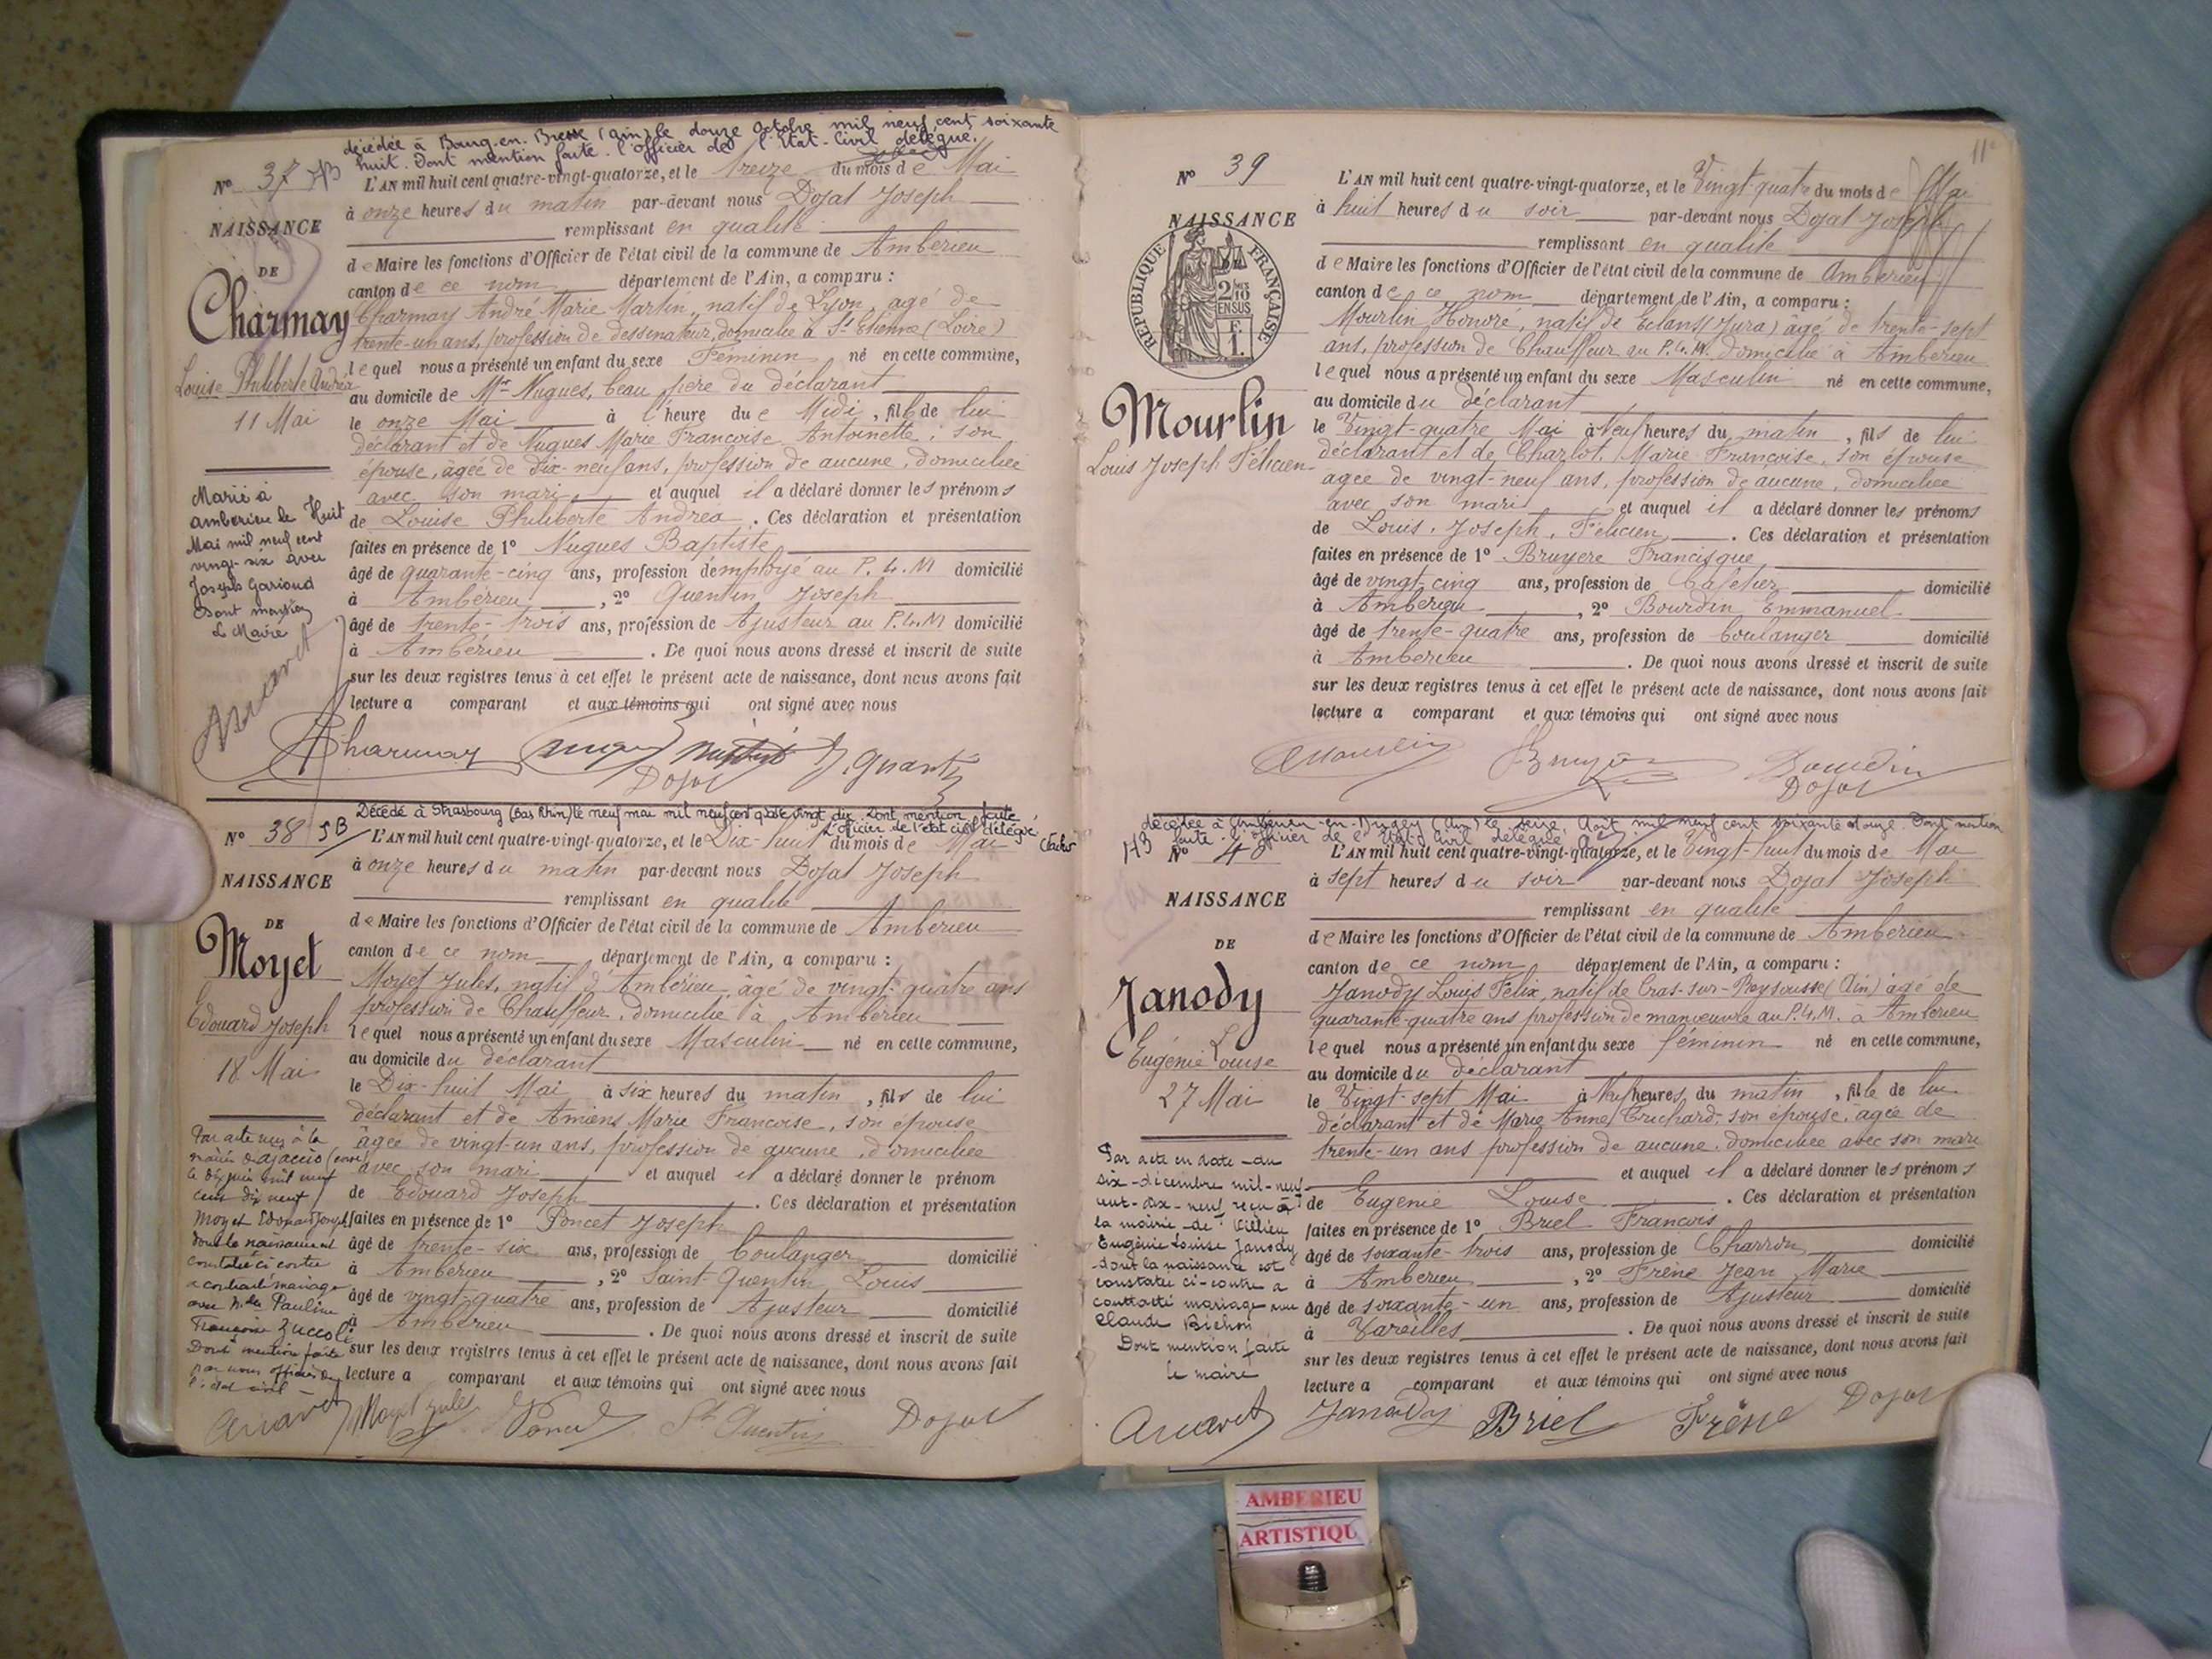 décédée à Bourg-en-Bresse (Ain) le douze Octobre mil neuf cent soixante
huit. Dont mention faite. l'Officier de l'Etat-Civil délégué.
Nº 37
NAISSANCE
DE
Charmay
Louise Philiberte Andréa
11 Mai
Marié à
amberieu le Huit
Mai mil neuf cent
vingt-six avec
Joseph Garioud
Dont mention
Le Maire
L'AN mil huit cent quatre-vingt-quatorze, et le treize du mois de Mai
à onze heures du matin par-devant nous Dojat Joseph
remplissant en qualité
de Maire les fonctions d'Officier de l'état civil de la commune de Ambérieu
canton de ce nom département de l'Ain, a comparu :
Charmay André Marie Martin, natif de Lyon, âgé de
trente-un ans, profession de dessinateur, domicilié à St Etienne (Loire)
lequel nous a présenté un enfant du sexe Féminin né en cette commune,
au domicile de Mr Nugues, beau père du déclarant
le onze Mai à l'heure de Midi, fille de lui
déclarant et de Nugues Marie Françoise Antoinette, son
épouse, âgée de dix-neuf ans, profession de aucune, domiciliée
avec son mari et auquel il a déclaré donner les prénoms
de Louise Philiberte Andréa. Ces déclaration et présentation
faites en présence de 1º Nugues Baptiste
âgé de quarante-cinq ans, profession d'employé au P.L.M domicilié
à Ambérieu, 2º Quentin Joseph
âgé de trente-trois ans, profession de Ajusteur au P.L.M domicilié
à Ambérieu. De quoi nous avons dressé et inscrit de suite
sur les deux registres tenus à cet effet le présent acte de naissance, dont nous avons fait
lecture a comparant et aux témoins qui ont signé avec nous
Charmay Dojat
Décédé à Strasbourg (Bas Rhin) le neuf mai mil neuf cent quatre vingt dix. Dont mention faite.
L'officier de l'état civil délégué
Nº 38
NAISSANCE
DE
Moyet
Edouard Joseph
18 Mai
Par acte reçu à la
mairie d'Ajaccio (corse)
le dix juin mil neuf
cent dix neuf
Moyet Edouard Joseph
dont la naissance est
constatée ci contre
a contracté mariage
avec Mlle Pauline
Françoise Zuccoli
Dont mention faite
par nous officier de
l'état civil
L'AN mil huit cent quatre-vingt-quatorze, et le Dix-huit du mois de Mai
à onze heures du matin par-devant nous Dojat Joseph
remplissant en qualité
de Maire les fonctions d'Officier de l'état civil de la commune de Ambérieu
canton de ce nom département de l'Ain, a comparu :
Moyet Jules, natif d'Ambérieu, âgé de vingt-quatre ans
profession de Chauffeur, domicilié à Ambérieu
lequel nous a présenté un enfant du sexe Masculin né en cette commune,
au domicile du déclarant
le Dix-huit Mai à six heures du matin, fils de lui
déclarant et de Amiens Marie Françoise, son épouse
âgée de vingt-un ans, profession de aucune, domiciliée
avec son mari et auquel il a déclaré donner le prénom
de Edouard Joseph. Ces déclaration et présentation
faites en présence de 1º Poncet Joseph
âgé de trente-six ans, profession de boulanger domicilié
à Ambérieu, 2º Saint-Quentin Louis
âgé de vingt-quatre ans, profession de Ajusteur domicilié
à Ambérieu. De quoi nous avons dressé et inscrit de suite
sur les deux registres tenus à cet effet le présent acte de naissance, dont nous avons fait
lecture a comparant et aux témoins qui ont signé avec nous
Moyet Jules Poncet St Quentin Dojat
11
Nº 39
NAISSANCE
RÉPUBLIQUE FRANÇAISE
2/10 EN SUS
F 1.
Mourlin
Louis Joseph Félicien
L'AN mil huit cent quatre-vingt-quatorze, et le Vingt-quatre du mois de Mai
à huit heures du soir par-devant nous Dojat Joseph
remplissant en qualité
de Maire les fonctions d'Officier de l'état civil de la commune de Ambérieu
canton de ce nom département de l'Ain, a comparu :
Mourlin Honoré, natif de Eclans (Jura) âgé de trente-sept
ans, profession de Chauffeur au P.L.M. domicilié à Ambérieu
lequel nous a présenté un enfant du sexe Masculin né en cette commune,
au domicile du déclarant
le Vingt-quatre Mai à Neuf heures du matin, fils de lui
déclarant et de Charlot, Marie Françoise, son épouse
âgée de vingt-neuf ans, profession de aucune, domiciliée
avec son mari et auquel il a déclaré donner les prénoms
de Louis, Joseph, Félicien. Ces déclaration et présentation
faites en présence de 1º Bruyere Francisque
âgé de vingt-cinq ans, profession de Cafetier domicilié
à Ambérieu, 2º Bourdin Emmanuel
âgé de trente-quatre ans, profession de boulanger domicilié
à Ambérieu. De quoi nous avons dressé et inscrit de suite
sur les deux registres tenus à cet effet le présent acte de naissance, dont nous avons fait
lecture a comparant et aux témoins qui ont signé avec nous
Mourlin Bruyère Bourdin
Dojat
décédée à Ambérieu-en-Bugey (Ain) le seize Août mil neuf cent soixante douze. Dont mention
faite. l'officier de l'Etat-Civil délégué
Nº 40
NAISSANCE
DE
Janody
Eugénie Louise
27 Mai
Par acte en date du
six décembre mil-neuf
cent-dix-neuf reçu à
la mairie de
Eugénie Louise Janody
dont la naissance est
constatée ci-contre a
contracté mariage avec
Claude Bichon
Dont mention faite
le maire
L'AN mil huit cent quatre-vingt-quatorze, et le Vingt-huit du mois de Mai
à sept heures du soir par-devant nous Dojat Joseph
remplissant en qualité
de Maire les fonctions d'Officier de l'état civil de la commune de Ambérieu
canton de ce nom département de l'Ain, a comparu :
Janody Louis Félix, natif de Cras-sur-Reyssouze (Ain) âgé de
quarante-quatre ans profession de manoeuvre au P.L.M. à Ambérieu
lequel nous a présenté un enfant du sexe féminin né en cette commune,
au domicile du déclarant
le Vingt-sept Mai à Neuf heures du matin, fille de lui
déclarant et de Marie Anne Cruchard, son épouse, âgée de
trente-un ans profession de aucune, domiciliée avec son mari
et auquel il a déclaré donner les prénoms
de Eugénie Louise. Ces déclaration et présentation
faites en présence de 1º Briel François
âgé de soixante-trois ans, profession de Charron domicilié
à Ambérieu, 2º Frène Jean Marie
âgé de soixante-un ans, profession de Ajusteur domicilié
à Vareilles. De quoi nous avons dressé et inscrit de suite
sur les deux registres tenus à cet effet le présent acte de naissance, dont nous avons fait
lecture a comparant et aux témoins qui ont signé avec nous
Janody Briel Frène Dojat
AMBERIEU
ARTISTIQU